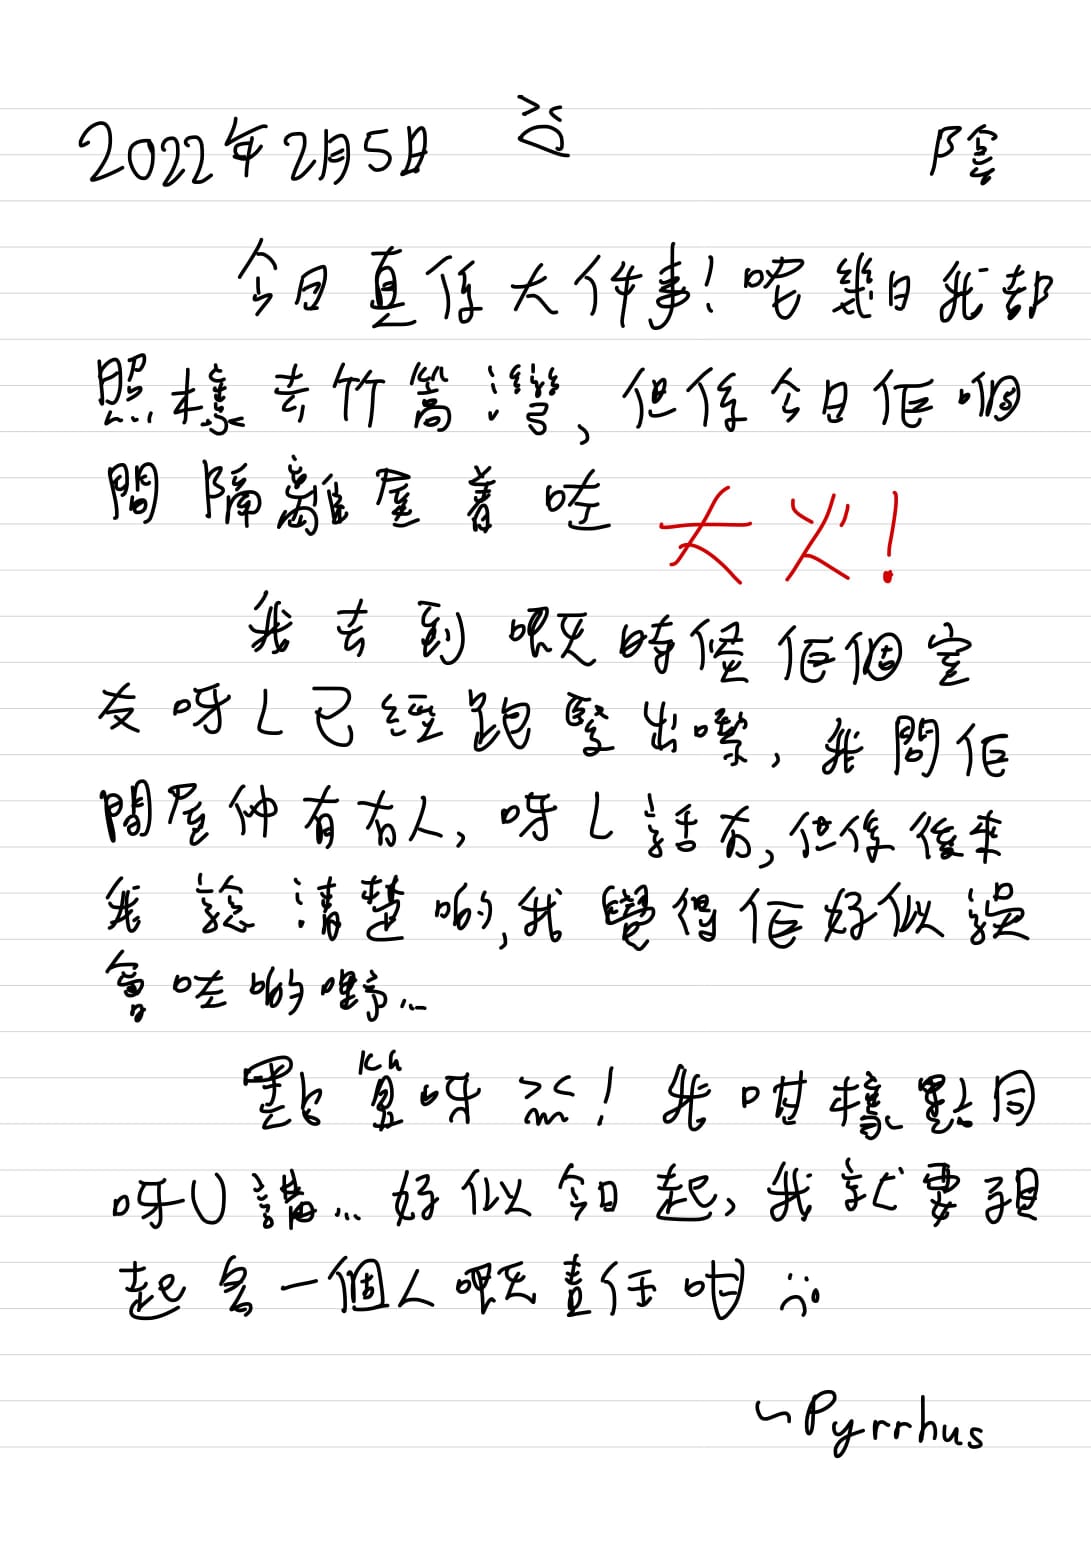 2022年2月5日 陰
今日真係大件事！呢幾日我都
照樣去竹篙灣，但係今日佢嗰
間隔離屋着咗 大火！
我去到嘅時候佢個室
友呀L已經跑緊出嚟，我問佢
間屋仲有冇人，呀L話冇，但係後來
我諗清楚啲，我覺得佢好似誤
會咗啲嘢...
點算呀 ><！我咁樣點同
呀U講... 好似今日起，我就要預
起另一個人嘅責任咁 :(
~Pyrrhus